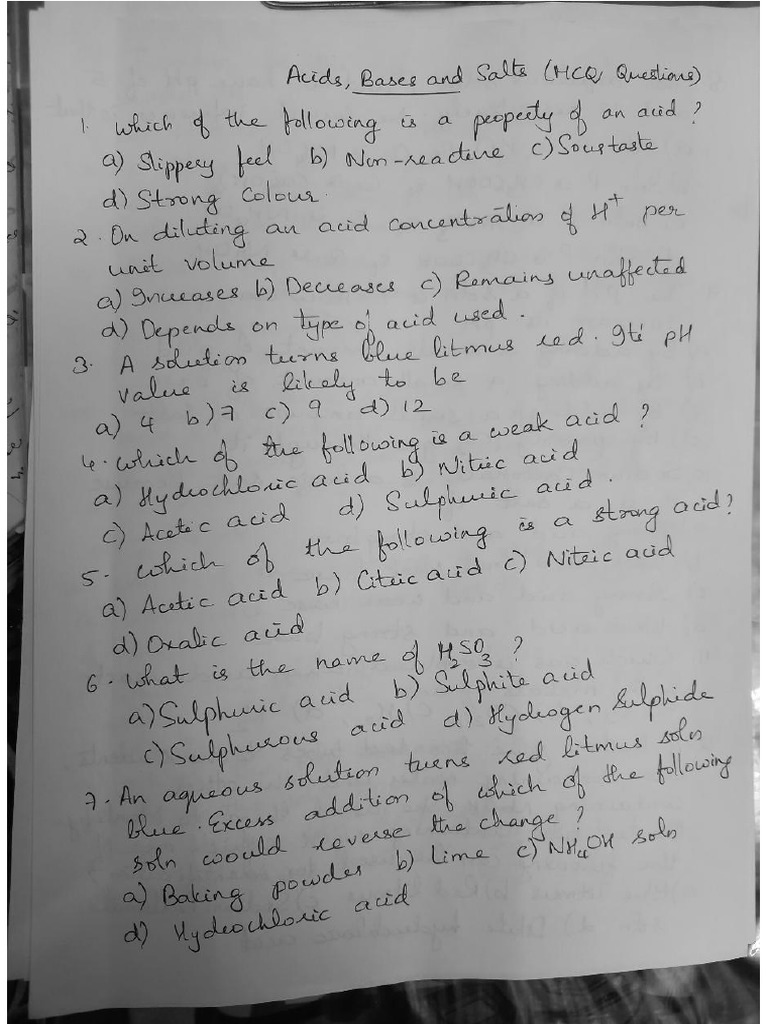 Acids, Bases and Salts (MCQ Questions)
1. Which of the following is a property of an acid?
a) Slippery feel b) Non-reactive c) Sour taste
d) Strong Colour.
2. On diluting an acid concentration of H⁺ per
unit volume
a) Increases b) Decreases c) Remains unaffected
d) Depends on type of acid used.
3. A solution turns blue litmus red. Its pH
value is likely to be
a) 4 b) 7 c) 9 d) 12
4. Which of the following is a weak acid?
a) Hydrochloric acid b) Nitric acid
c) Acetic acid d) Sulphuric acid.
5. Which of the following is a strong acid?
a) Acetic acid b) Citric acid c) Nitric acid
d) Oxalic acid
6. What is the name of H₂SO₃?
a) Sulphuric acid b) Sulphite acid
c) Sulphurous acid d) Hydrogen Sulphide
7. An aqueous solution turns red litmus soln
blue. Excess addition of which of the following
soln would reverse the change?
a) Baking powder b) Lime c) NH₄OH soln
d) Hydrochloric acid